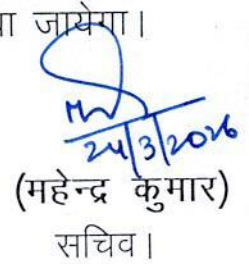 जायेगा।
24/3/2026
(महेन्द्र कुमार)
सचिव।